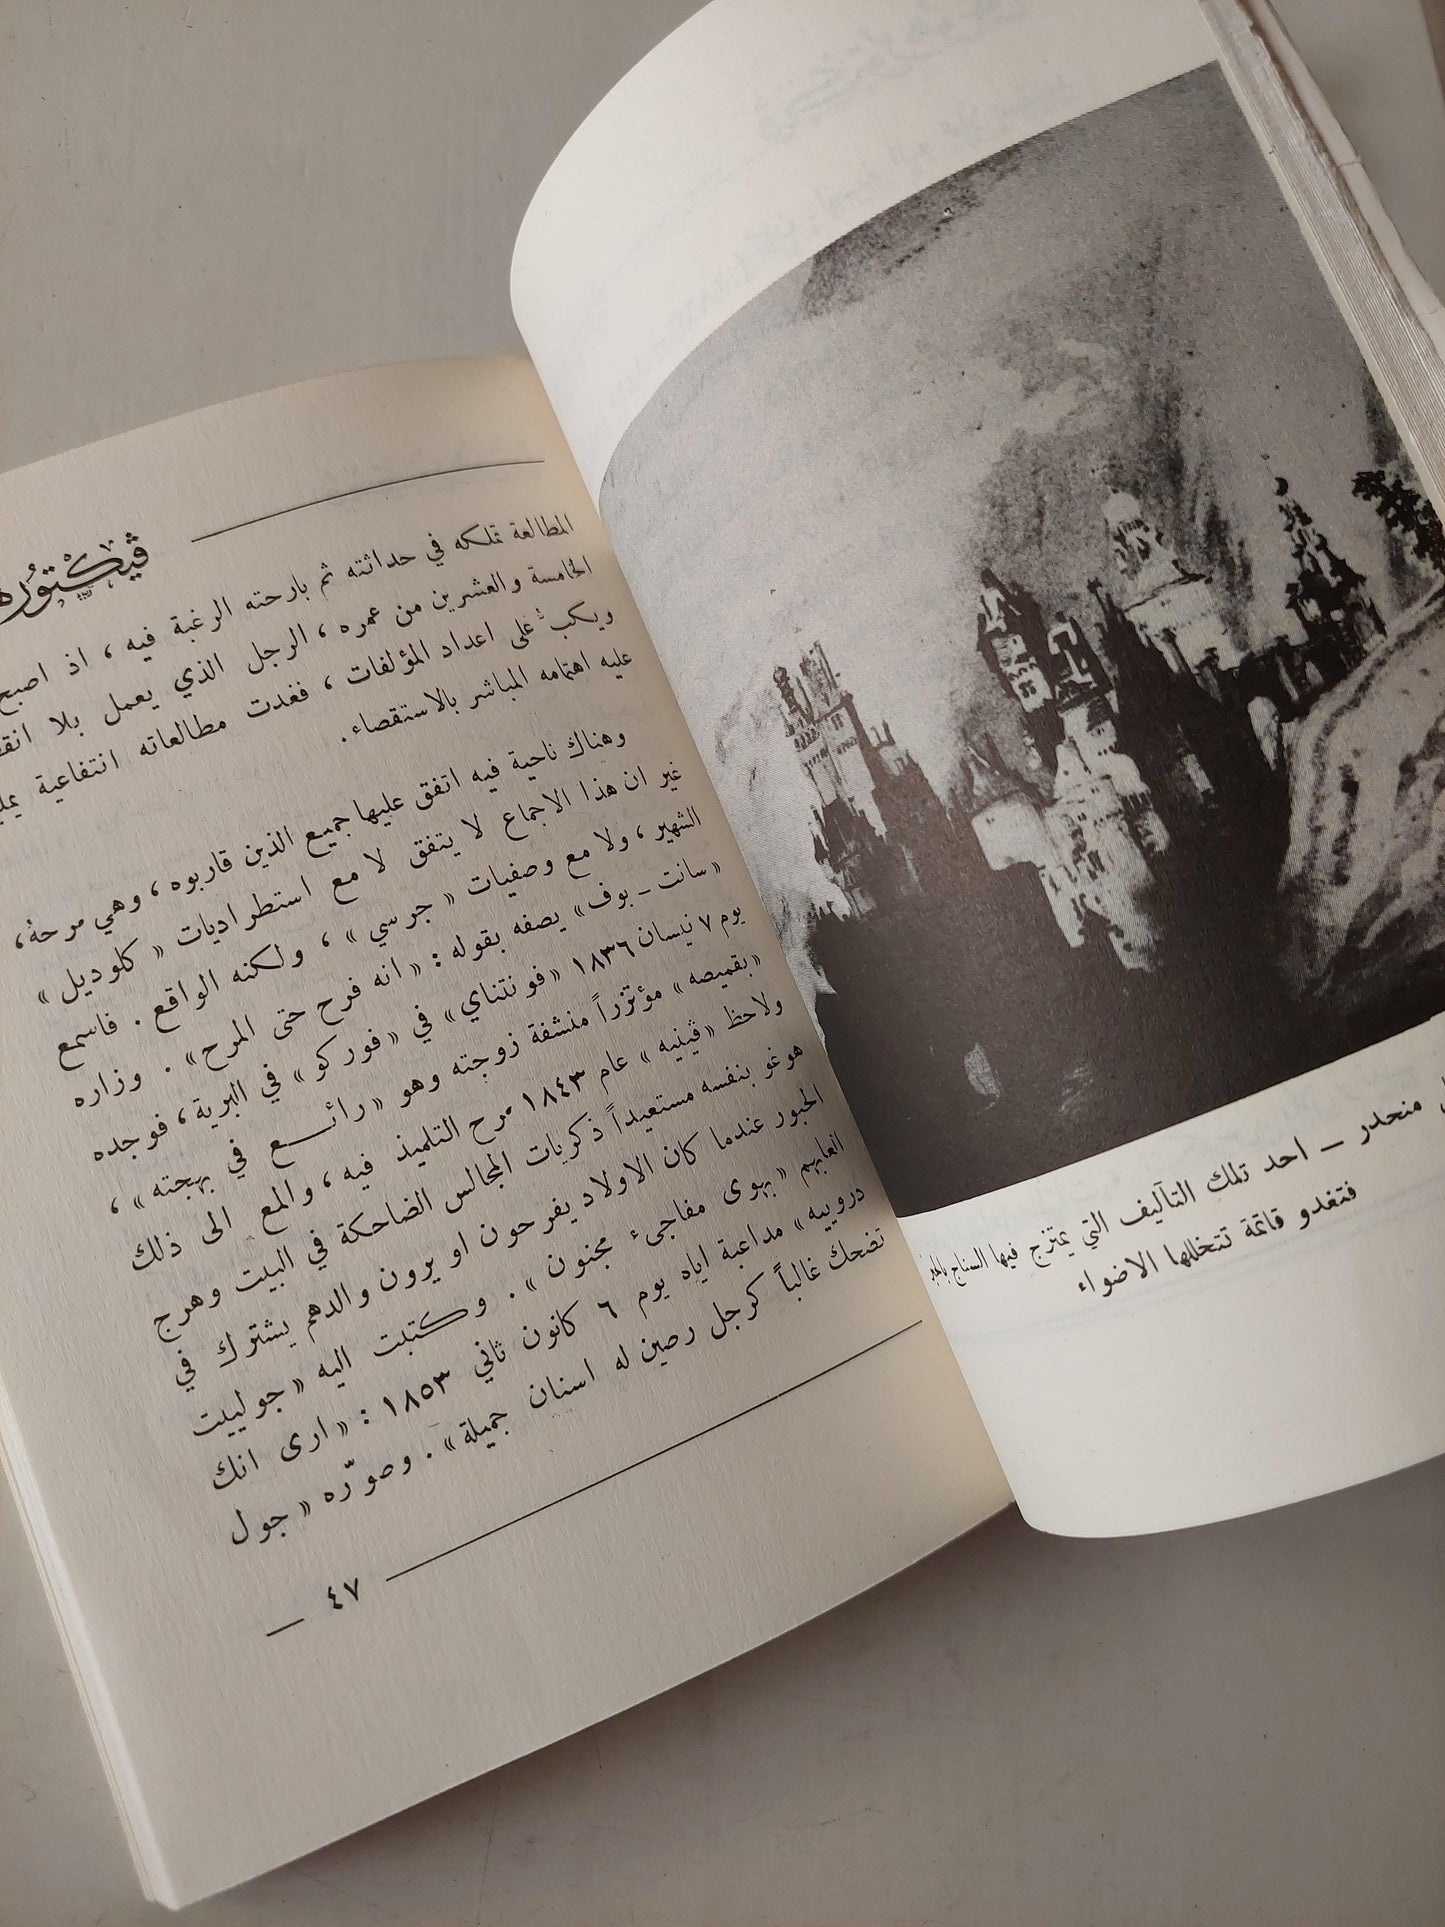 ڤيكتور ه
المطالعة تملكه في حداثته ثم بارحته الرغبة فيه ، اذ اصبح
الخامسة والعشرين من عمره ، الرجل الذي يعمل بلا
ويكب على اعداد المؤلفات ، فغدت مطالعاته انتفاعية
عليه اهتمامه المباشر بالاستقصاء .
وهناك ناحية فيه اتفق عليها جميع الذين قاربوه ، وهي مرحهُ ،
غير ان هذا الاجماع لا يتفق لا مع استطراديات « كلوديل »
الشهير ، ولا مع وصفيات « جرسي » ، ولكنه الواقع . فاسمع
« سانت ـ بوف » يصفه بقوله : « انه فرح حتى المرح » . وزاره
يوم ٧ نيسان ١٨٣٦ « فونتناي » في « فوركو » في البرية ، فوجده
« بقميصه » مؤتزراً منشفة زوجته وهو « رائــع في بهجته » ،
ولاحظ « ڤينيه » عام ١٨٤٣ مرح التلميذ فيه ، والمع الى ذلك
هوغو بنفسه مستعيداً ذكريات المجالس الضاحكة في البيت وهرج
الحبور عندما كان الاولاد يفرحون او يرون والدهم يشترك في
العابهم « بهوى مفاجىء مجنون » . وكتبت اليه « جولييت
دروييه » مداعبة اياه يوم ٦ كانون ثاني ١٨٥٣ : « ارى انك
تضحك غالباً كرجل رصين له اسنان جميلة » . وصوّره « جول
٤٧ —
منحدر — احد تلك التآليف التي يمتزج فيها السناج بالحبر
فتغدو قاتمة تتخللها الاضواء